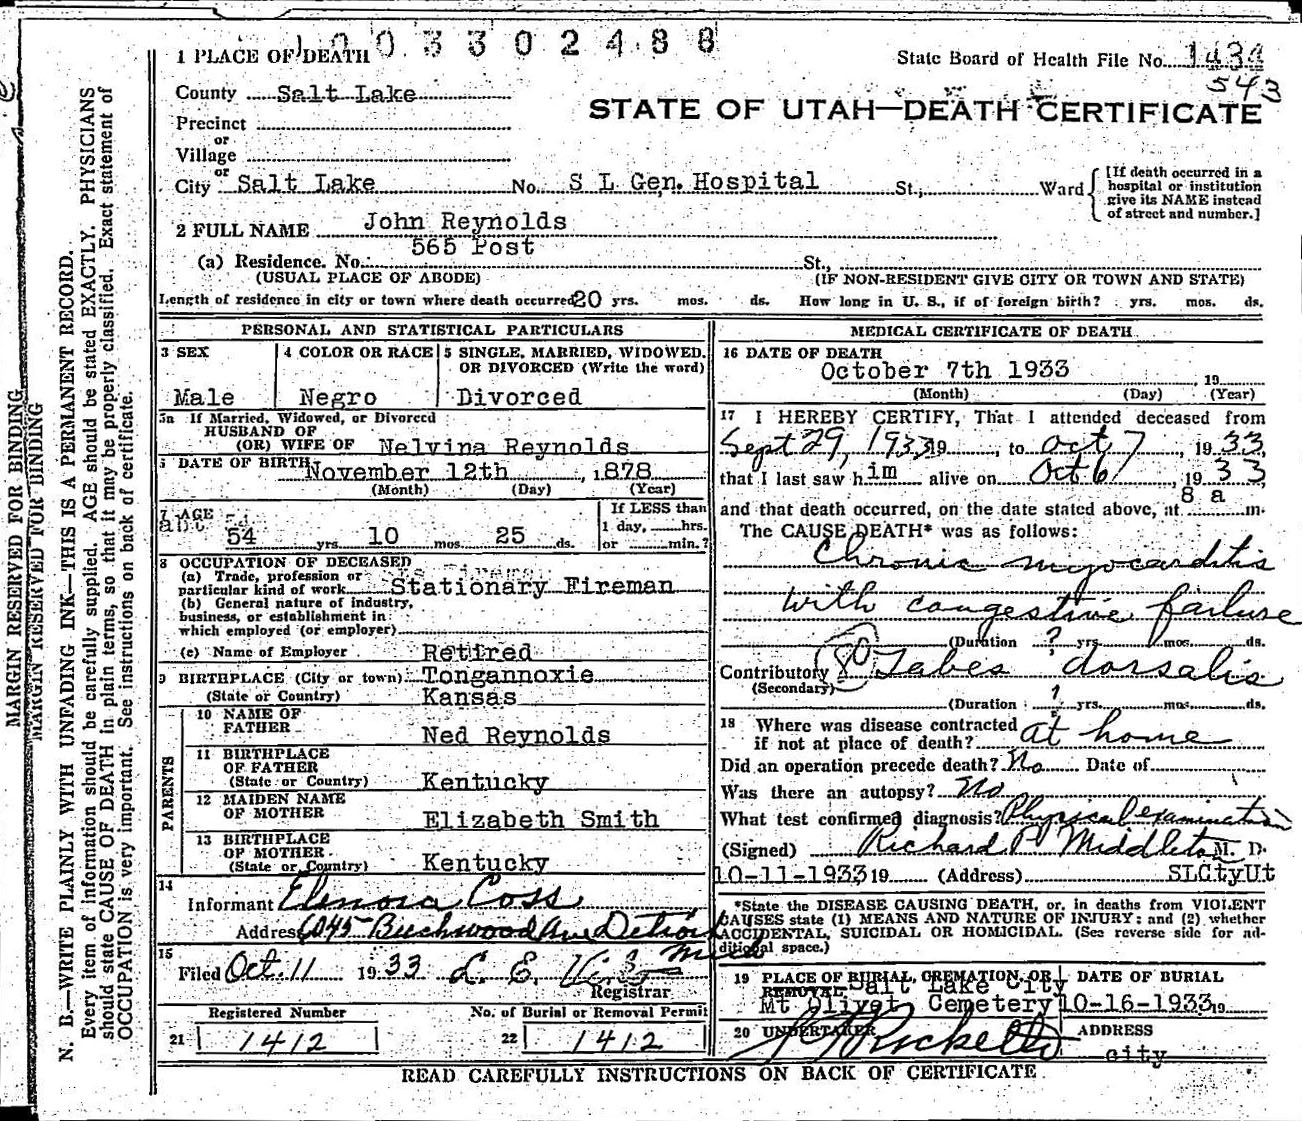 1003302488
1 PLACE OF DEATH
State Board of Health File No. 1434
543
County Salt Lake
STATE OF UTAH—DEATH CERTIFICATE
Precinct
or
Village
or
City Salt Lake No. S L Gen. Hospital St., Ward
[If death occurred in a
hospital or institution
give its NAME instead
of street and number.]
2 FULL NAME John Reynolds
565 Post
(a) Residence. No. St.,
(USUAL PLACE OF ABODE) (IF NON-RESIDENT GIVE CITY OR TOWN AND STATE)
Length of residence in city or town where death occurred 20 yrs. mos. ds. How long in U. S., if of foreign birth? yrs. mos. ds.
PERSONAL AND STATISTICAL PARTICULARS
3 SEX
Male
4 COLOR OR RACE
Negro
5 SINGLE, MARRIED, WIDOWED,
OR DIVORCED (Write the word)
Divorced
5a If Married, Widowed, or Divorced
HUSBAND OF
(OR) WIFE OF Nelvina Reynolds
DATE OF BIRTH November 12th, 1878
(Month) (Day) (Year)
7 AGE
54 yrs. 10 mos. 25 ds.
If LESS than
1 day, hrs.
or min.?
8 OCCUPATION OF DECEASED
(a) Trade, profession or
particular kind of work Stationary Fireman
(b) General nature of industry,
business, or establishment in
which employed (or employer)
(c) Name of Employer Retired
9 BIRTHPLACE (City or town) Tongannoxie
(State or Country) Kansas
PARENTS
10 NAME OF
FATHER Ned Reynolds
11 BIRTHPLACE
OF FATHER
(State or Country) Kentucky
12 MAIDEN NAME
OF MOTHER Elizabeth Smith
13 BIRTHPLACE
OF MOTHER
(State or Country) Kentucky
14
Informant Elenora Coss
Address 6045 Buchwood Ave Detroit
Mich
15
Filed Oct. 11 1933 L. E.
Registrar
Registered Number No. of Burial or Removal Permit
21 1412 22 1412
MEDICAL CERTIFICATE OF DEATH
16 DATE OF DEATH
October 7th 1933, 19
(Month) (Day) (Year)
17 I HEREBY CERTIFY, That I attended deceased from
Sept 29, 1933 19, to Oct 7, 1933,
that I last saw him alive on Oct 6, 1933
and that death occurred, on the date stated above, at 8 a m.
The CAUSE DEATH* was as follows:
Chronic myocarditis
with congestive failure
(Duration ? yrs. mos. ds.
Contributory 80 Tabes dorsalis
(Secondary)
(Duration ? yrs. mos. ds.
18 Where was disease contracted
if not at place of death? at home
Did an operation precede death? No Date of
Was there an autopsy? No
What test confirmed diagnosis? Physical examination
(Signed) Richard P Middleton M. D.
10-11-1933 19 (Address) SLCtyUt
*State the DISEASE CAUSING DEATH, or, in deaths from VIOLENT
CAUSES state (1) MEANS AND NATURE OF INJURY; and (2) whether
ACCIDENTAL, SUICIDAL OR HOMICIDAL. (See reverse side for ad-
ditional space.)
19 PLACE OF BURIAL, CREMATION, OR
REMOVAL Salt Lake City
Mt Olivet Cemetery
DATE OF BURIAL
10-16-1933 19
20 UNDERTAKER
Ricketts
ADDRESS
city
READ CAREFULLY INSTRUCTIONS ON BACK OF CERTIFICATE
MARGIN RESERVED FOR BINDING
MARGIN RESERVED FOR BINDING
N. B.—WRITE PLAINLY WITH UNFADING INK—THIS IS A PERMANENT RECORD.
Every item of information should be carefully supplied. AGE should be stated EXACTLY. PHYSICIANS
should state CAUSE OF DEATH in plain terms, so that it may be properly classified. Exact statement of
OCCUPATION is very important. See instructions on back of certificate.